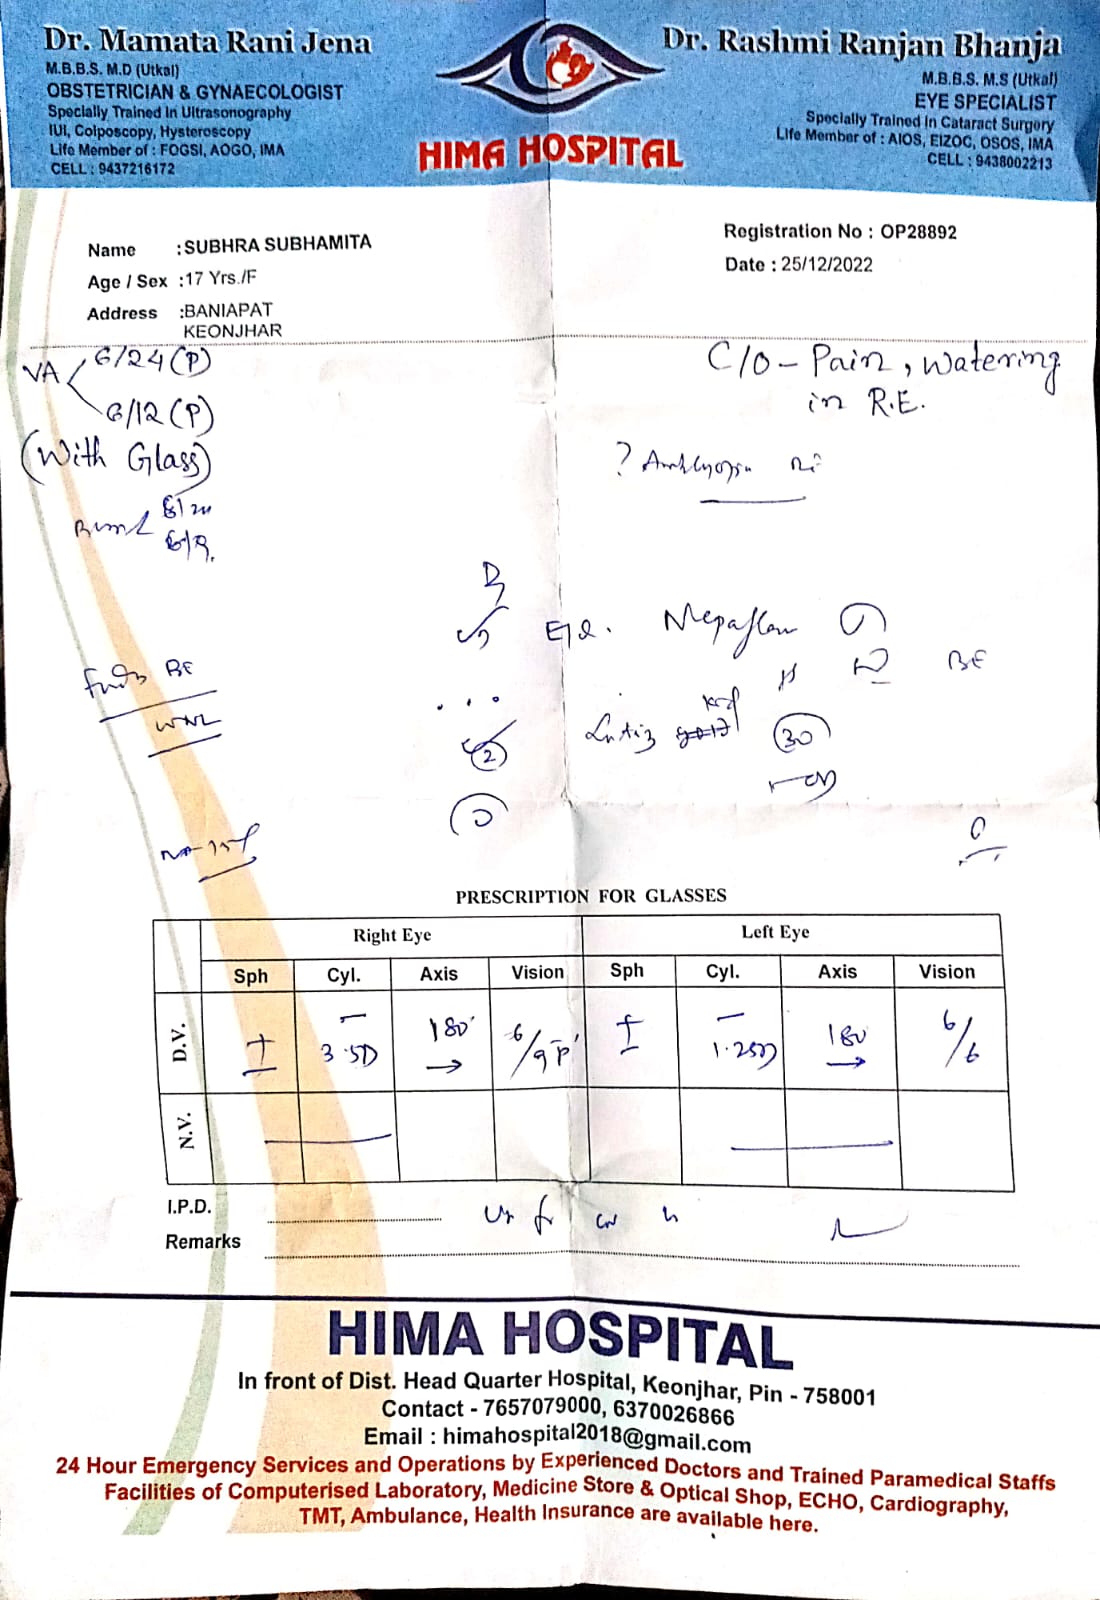 Dr. Mamata Rani Jena
M.B.B.S. M.D (Utkal)
OBSTETRICIAN & GYNAECOLOGIST
Specially Trained In Ultrasonography
IUI, Colposcopy, Hysteroscopy
Life Member of : FOGSI, AOGO, IMA
CELL : 9437216172
HIMA HOSPITAL
Dr. Rashmi Ranjan Bhanja
M.B.B.S. M.S (Utkal)
EYE SPECIALIST
Specially Trained In Cataract Surgery
Life Member of : AIOS, EIZOC, OSOS, IMA
CELL : 9438002213
Name : SUBHRA SUBHAMITA
Age / Sex : 17 Yrs./F
Address : BANIAPAT
KEONJHAR
Registration No : OP28892
Date : 25/12/2022
VA 6/24 (P)
6/12 (P)
(With Glass)
C/O - Pain, Watering
in R.E.
BE
WNL
BE
30
PRESCRIPTION FOR GLASSES
Right Eye Left Eye
Sph Cyl. Axis Vision Sph Cyl. Axis Vision
D.V. ± - 3.5D 180° → 6/9 P ± - 1.25D 180 → 6/6
N.V.
I.P.D.
Remarks
HIMA HOSPITAL
In front of Dist. Head Quarter Hospital, Keonjhar, Pin - 758001
Contact - 7657079000, 6370026866
Email : himahospital2018@gmail.com
24 Hour Emergency Services and Operations by Experienced Doctors and Trained Paramedical Staffs
Facilities of Computerised Laboratory, Medicine Store & Optical Shop, ECHO, Cardiography,
TMT, Ambulance, Health Insurance are available here.